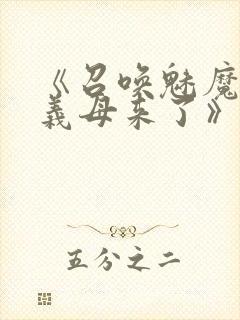 《召唤魅魔
義母来了》
五分之二